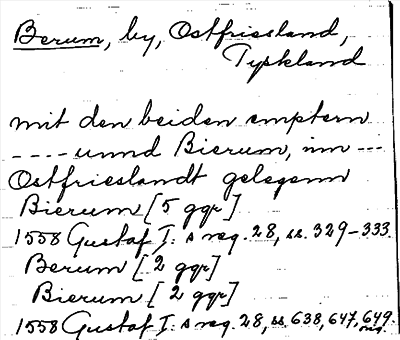 Berum, by, Ostfriesland,
Tyskland
mit den beiden emptern
---- unnd Bierum, inn ---
Ostfrieslandt gelegenn
Bierum [5 ggr]
1558 Gustaf I:s reg. 28, ss. 329-333.
Berum [2 ggr]
Bierum [2 ggr]
1558 Gustaf I:s reg. 28, ss. 638, 647, 649.